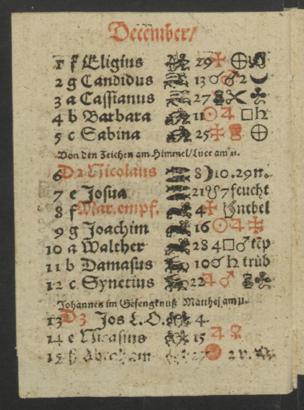 December/
1 f Eligius 29
2 g Candidus 13 ☌ ♂ 2
3 a Cassianus 27
4 b Barbara 11 ♃ □ ♄
5 c Sabina 25
Von den Zeichen am Himmel/ Luce am 21.
6 D2 Nicolaus 8 10.29n.
7 e Josua 21 feucht
8 f Mar. empf. 4 nebel
9 g Joachim 16
10 a Walther 28 4 □ ♂
11 b Damasus 10 ♄ trüb
12 c Synerius 22 ♃ ♂
Johannes im Gefengknuß Matthej am 11.
13 D3 Jos L.O. 4.
14 e Nicasius 15
15 f Abraham 27